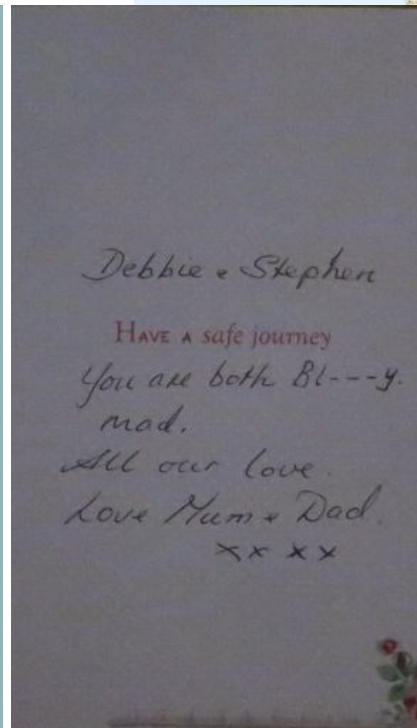 Debbie & Stephen
HAVE A safe journey
You are both Bl---y.
mad.
All our love.
Love Mum & Dad.
xx xx